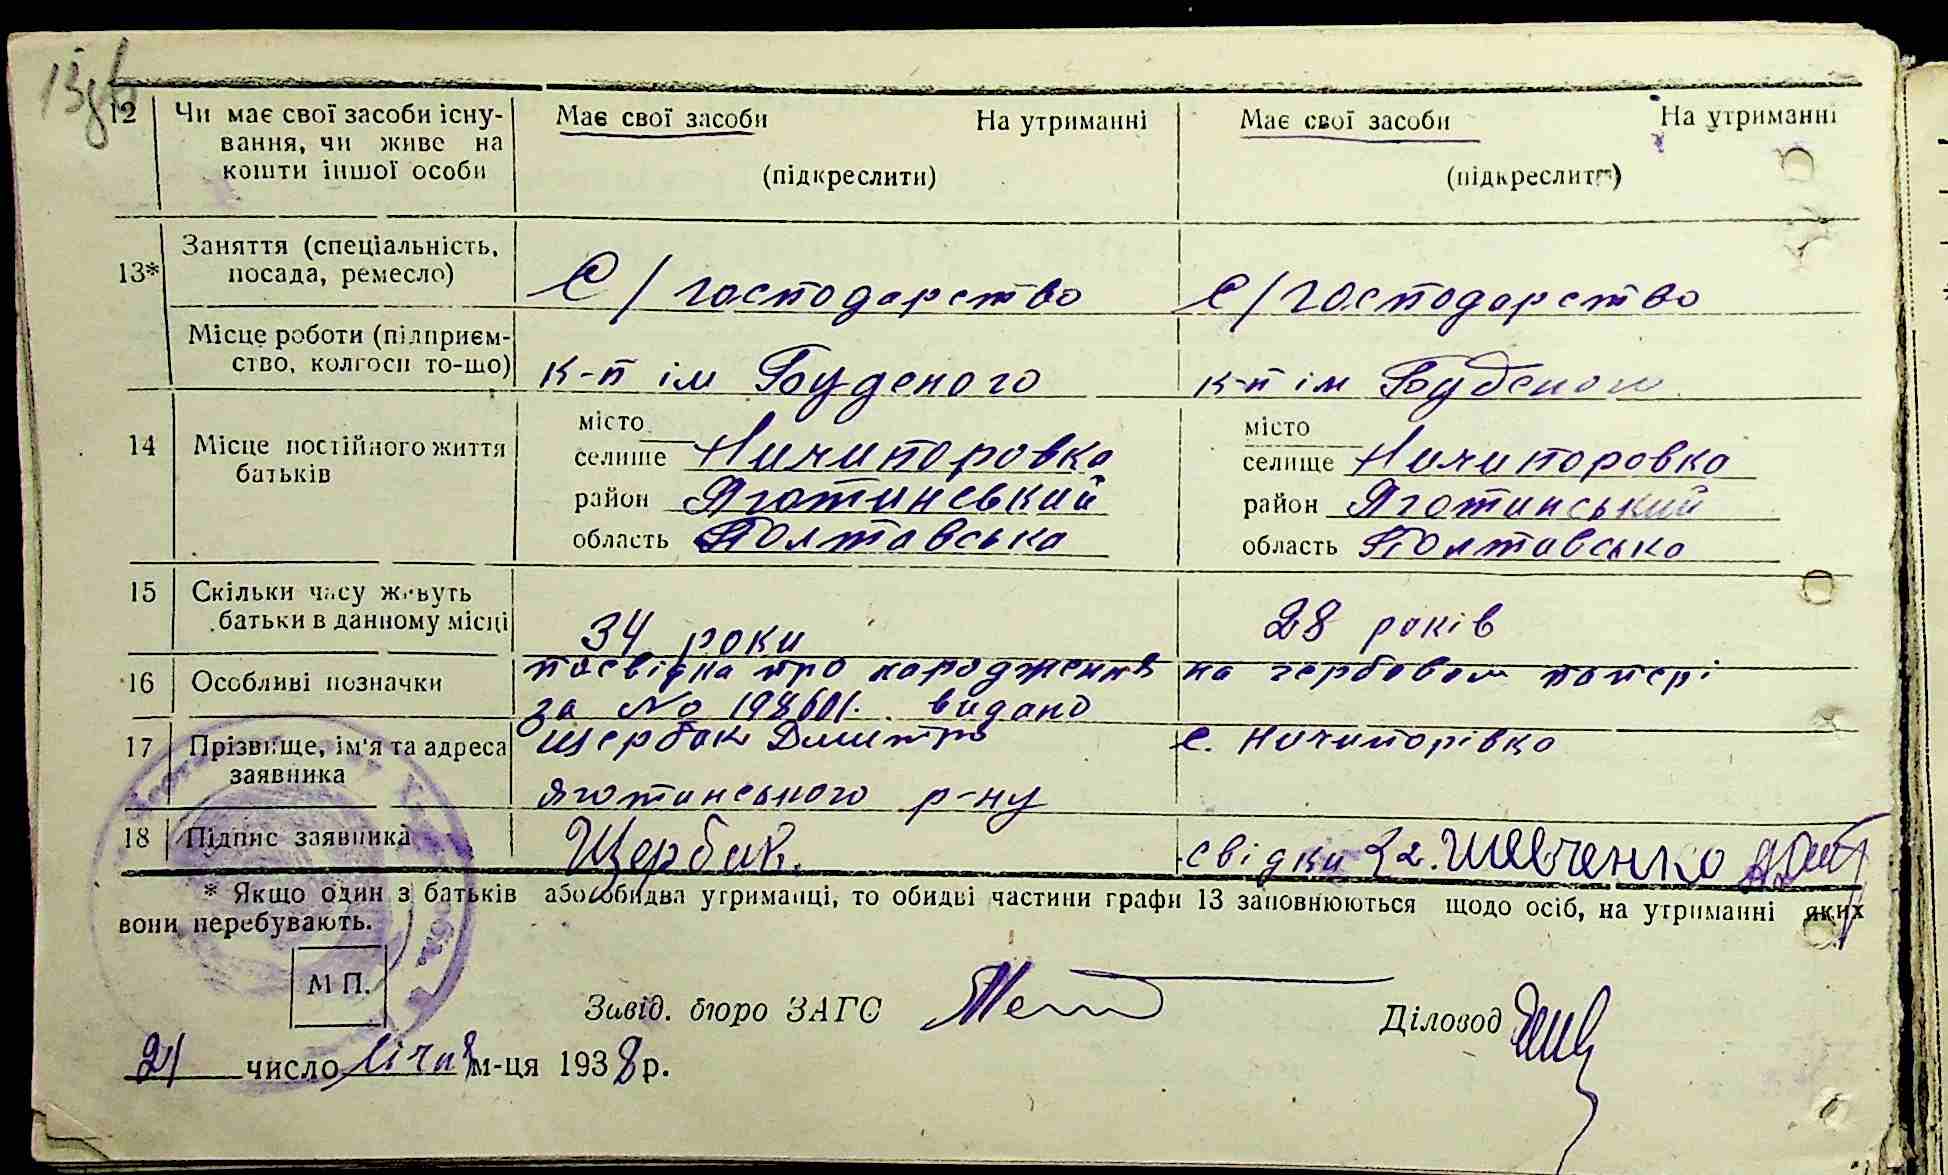 13зв
12 Чи має свої засоби існу-
вання, чи живе на
кошти іншої особи
Має свої засоби На утриманні
(підкреслити)
Має свої засоби На утриманні
(підкреслити)
13* Заняття (спеціальність,
посада, ремесло)
С/господарство С/господарство
Місце роботи (підприєм-
ство, колгосп то-що)
к-п ім Буденого к-п ім Буденого
14 Місце постійного життя
батьків
місто
селище Ничипоровка
район Яготинський
область Полтавська
місто
селище Ничипоровка
район Яготинський
область Полтавська
15 Скільки часу живуть
батьки в данному місці
34 роки 28 років
16 Особливі позначки
посвідка про народження на гербовом папері
за No видано
17 Прізвище, ім'я та адреса
заявника
Щербак Дмитро с. Ничипорівка
Яготинського р-ну
18 Підпис заявника
Щербак. свідки Шевченко
* Якщо один з батьків або обидва утриманці, то обидві частини графи 13 заповнюються щодо осіб, на утриманні яких
вони перебувають.
М П.
Завід. бюро ЗАГС Діловод
21 число січня м-ця 1938 р.